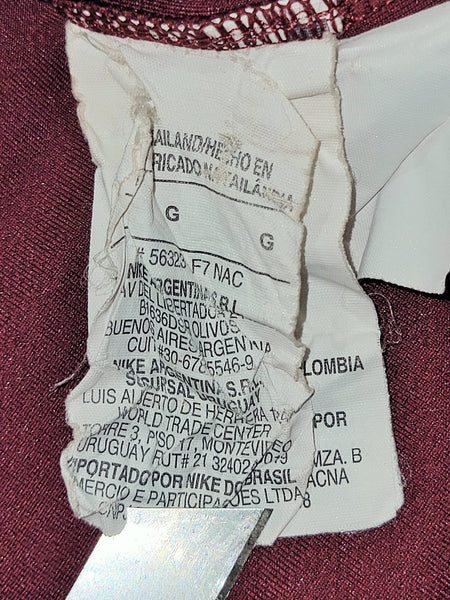 AILAND/HECHO EN
RICADO NA TAILÂNDIA
G G
# 56323 F7 NAC
NIKE ARGENTINA S.R.L.
AV DEL LIBERTADOR
B1636DSR OLIVOS
BUENOS AIRES ARGENTINA
NIKE ARGENTINA S.R.L.
SUCURSAL URUGUAY
LUIS ALBERTO DE HERRERA
WORLD TRADE CENTER
TORRE 3, PISO 17, MONTEVIDEO
URUGUAY RUT# 21 32402
MPORTADO POR NIKE DO BRASIL
MERCIO E PARTICIPAÇÕES LTDA
CNPJ
OLOMBIA
POR
MZA. B
ACNA
8